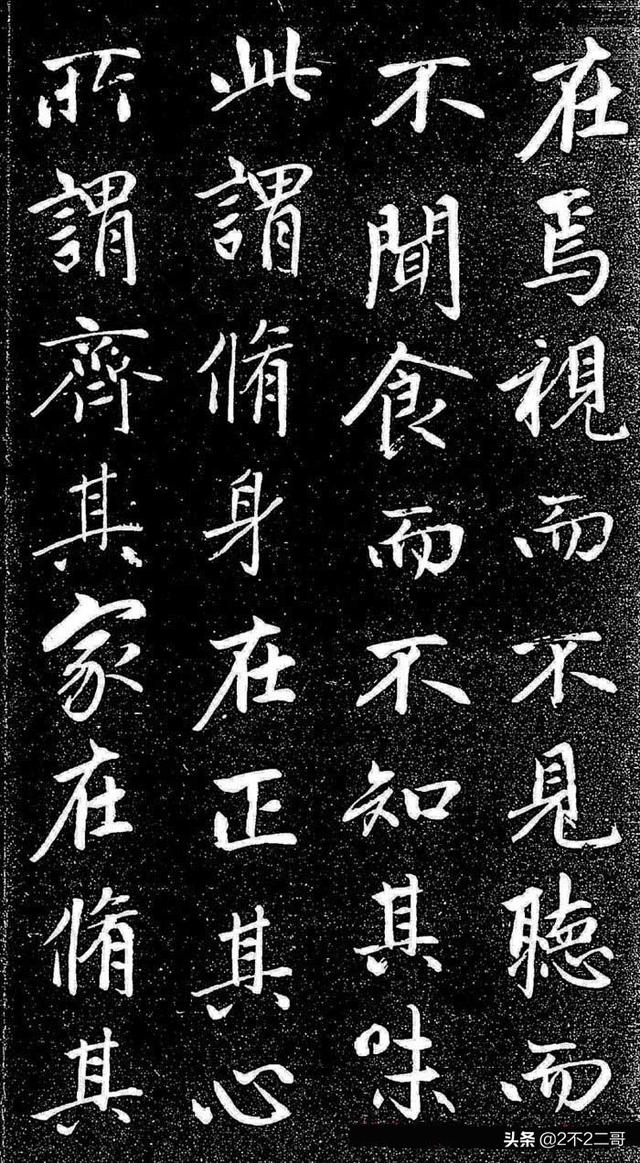 在焉視而不見聽而
不聞食而不知其味
此謂脩身在正其心
所謂齊其家在脩其
头条 @2不2二哥